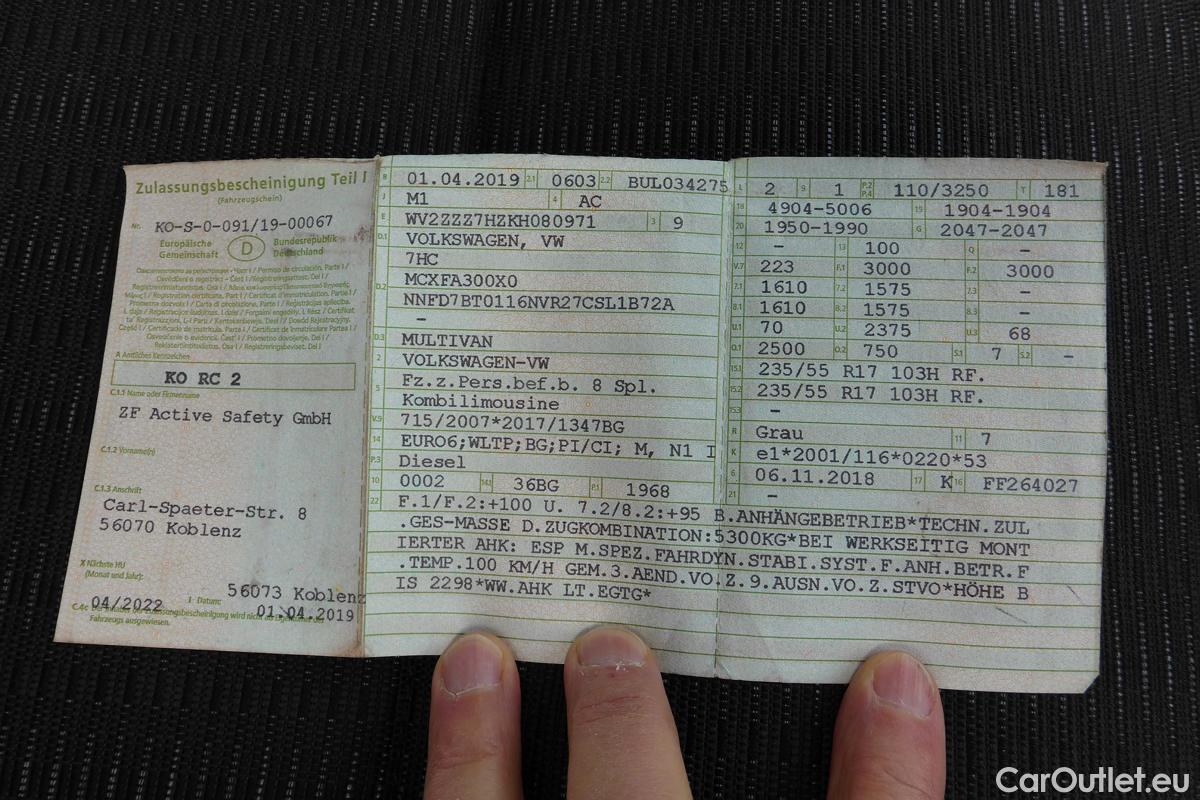 Zulassungsbescheinigung Teil I
(Fahrzeugschein)
Nr. KO-S-0-091/19-00067
Europäische Gemeinschaft D Bundesrepublik Deutschland
A Amtliches Kennzeichen
KO RC 2
C.1.1 Name oder Firmenname
ZF Active Safety GmbH
C.1.2 Vorname(n)
C.1.3 Anschrift
Carl-Spaeter-Str. 8
56070 Koblenz
X Nächste HU
(Monat und Jahr):
04/2022
I Datum:
56073 Koblenz
01.04.2019
C.4c
Fahrzeugs ausgewiesen.
B 01.04.2019 2.1 0603 2.2 BUL034275
J M1 4 AC
E WV2ZZZ7HZKH080971 3 9
D.1 VOLKSWAGEN, VW
7HC
D.2 MCXFA300X0
NNFD7BT0116NVR27CSL1B72A
–
D.3 MULTIVAN
2 VOLKSWAGEN-VW
5 Fz.z.Pers.bef.b. 8 Spl.
Kombilimousine
V.9 715/2007*2017/1347BG
14 EURO6;WLTP;BG;PI/CI; M, N1 I
P.3 Diesel
10 0002 14.1 36BG P.1 1968
L 2 9 1 P.2 P.4 110/3250 T 181
18 4904-5006 19 1904-1904
20 1950-1990 G 2047-2047
12 – 13 100 Q –
V.7 223 F.1 3000 F.2 3000
7.1 1610 7.2 1575 7.3 –
8.1 1610 8.2 1575 8.3 –
U.1 70 U.2 2375 U.3 68
O.1 2500 O.2 750 S.1 7 S.2 –
15.1 235/55 R17 103H RF.
15.2 235/55 R17 103H RF.
15.3 –
R Grau 11 7
K e1*2001/116*0220*53
6 06.11.2018 17 K 16 FF264027
21 –
22 F.1/F.2:+100 U. 7.2/8.2:+95 B.ANHÄNGEBETRIEB*TECHN.ZUL
.GES-MASSE D.ZUGKOMBINATION:5300KG*BEI WERKSEITIG MONT
IERTER AHK: ESP M.SPEZ.FAHRDYN.STABI.SYST.F.ANH.BETR.F
.TEMP.100 KM/H GEM.3.AEND.VO.Z.9.AUSN.VO.Z.STVO*HÖHE B
IS 2298*WW.AHK LT.EGTG*
CarOutlet.eu